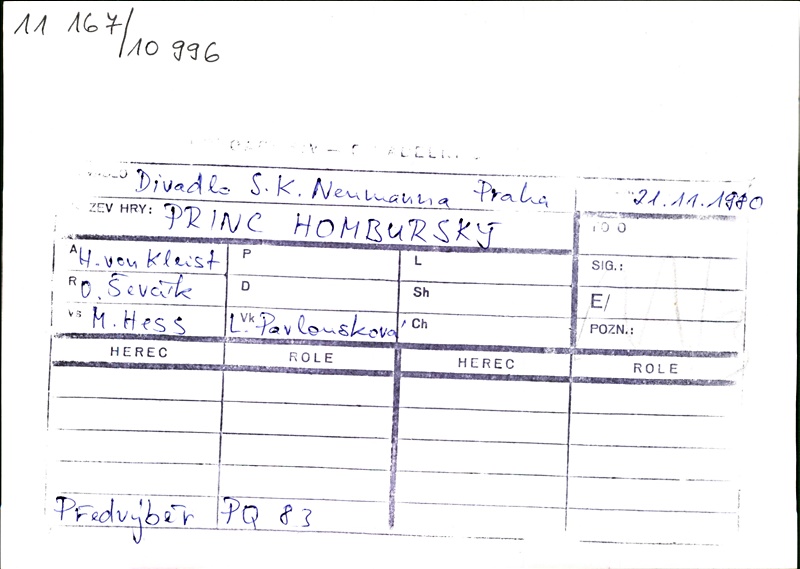 11 167/10 996
Divadlo S.K. Neumanna Praha 21.11.1980
ZEV HRY: PRINC HOMBURSKÝ
A H. von Kleist P L SIG.:
R O. Ševčík D Sh E/
VS M. Hess Vk L. Pavlouskova Ch POZN.:
HEREC ROLE HEREC ROLE
Předvýběr PQ 83